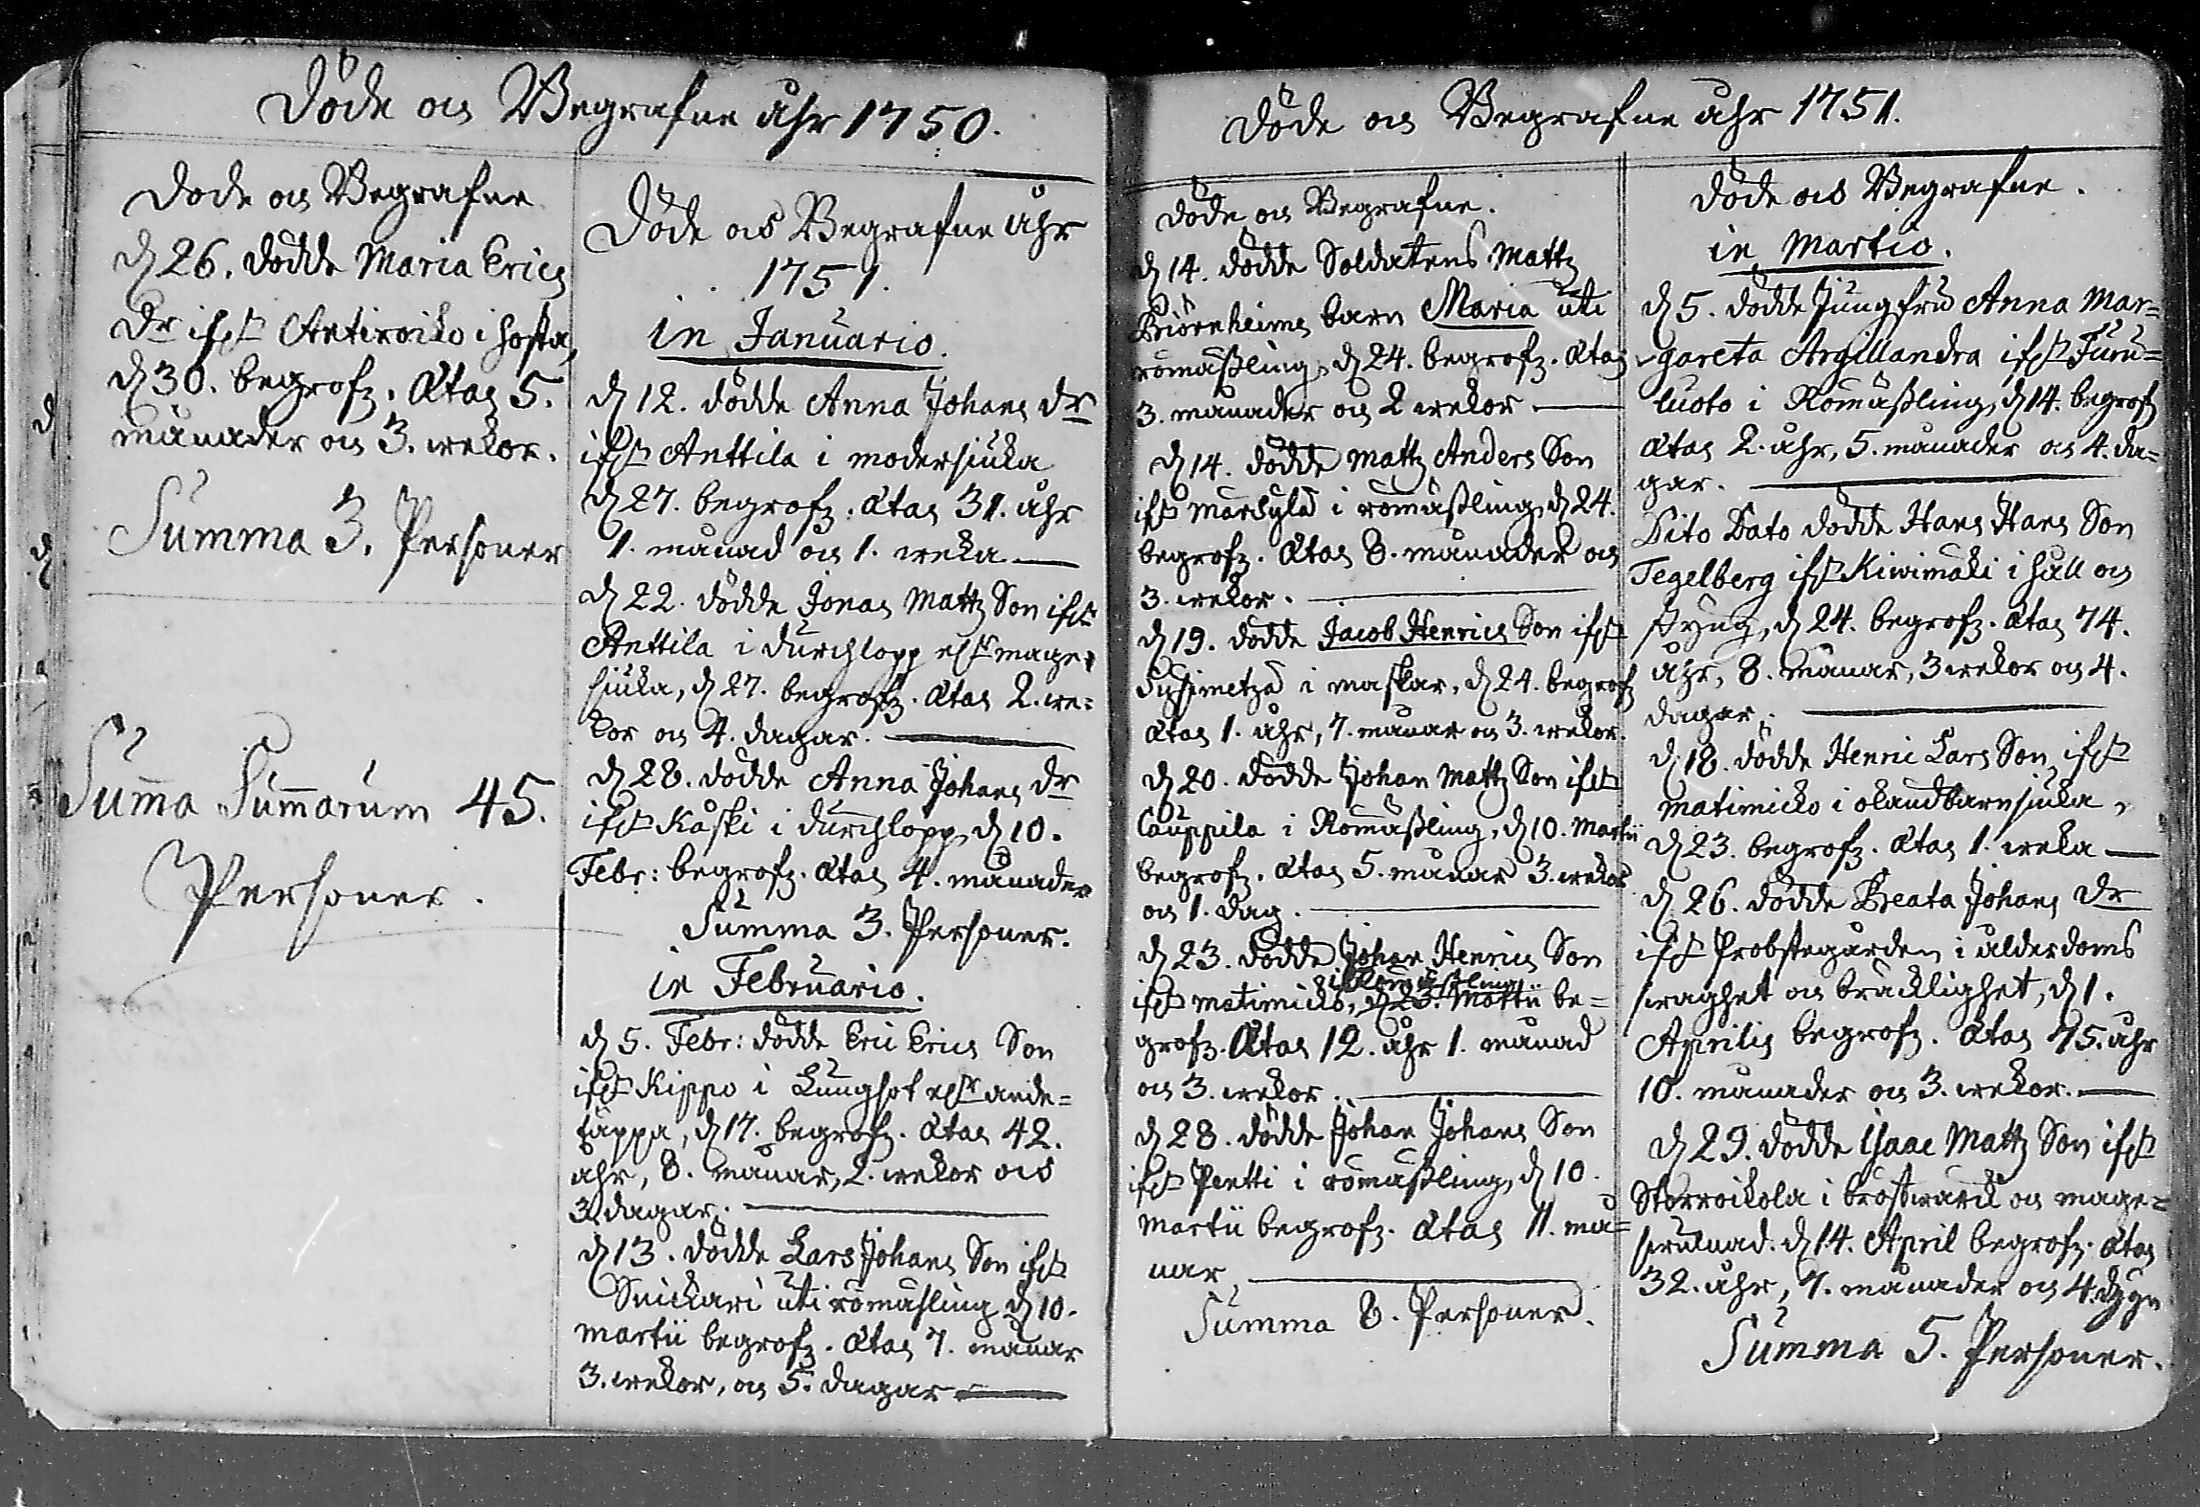 Döde och Begrafne åhr 1750.
Döde och Begrafne
d 26. dödde Maria Erics
Dr ifrån Antiroiko i hosta,
d 30. begrofz. Ætas 5.
månader och 3. wekor.
Summa 3. Personer
Summa Summarum 45.
Personer.
Döde och Begrafne åhr
1751.
in Januario.
d 12. dödde Anna Johans Dr
ifrån Anttila i modersiuka
d 27. begrofz. Ætas 31. åhr
1. månad och 1. weka
d 22. dödde Jonas Mattz Son ifrån
Anttila i durchlopp eller mage-
siuka, d 27. begrofz. Ætas 2. we=
kor och 4. dagar.
d 28. dödde Anna Johans Dr
ifrån Kåski i durchlopp, d 10.
Febr: begrofz. Ætas 4. månader
Summa 3. Personer.
in Februario.
d 5. Febr: dödde Eric Erics Son
ifrån Kippo i Lungsot eller ande=
täppa, d 17. begrofz. Ætas 42.
åhr, 8. månar, 2. wekor och
3. dagar.
d 13. dödde Lars Johans Son ifrån
Snickari uti römäßling d 10.
martii begrofz. Ætas 7. månar
3. wekor, och 5. dagar
Döde och Begrafne åhr 1751.
Döde och Begrafne.
d 14. dödde Soldatens Mattz
Biörnheims barn Maria uti
römäßling, d 24. begrofz. Ætas
3. månader och 2 wekor
d 14. dödde Mattz Anders Son
ifrån Markula i römäßling, d 24.
begrofz. Ætas 8. månader och
3. wekor.
d 19. dödde Jacob Henrics Son ifrån
Sysimetzä i maskar, d 24. begrofz
Ætas 1. åhr, 7. månar och 3. wekor.
d 20. dödde Johan Mattz Son ifrån
Cauppila i Römäßling, d 10. Martii
begrofz. Ætas 5. månar 3. wekor
och 1. dag.
d 23. dödde Johan Henrics Son
i Römäßling
ifrån matimicko, d 23. Martii be=
grofz. Ætas 12. åhr 1. månad
och 3. wekor.
d 28. dödde Johan Johans Son
ifrån Pentti i römäßling, d 10.
martii begrofz. Ætas 11. må=
nar
Summa 8. Personer.
Döde och Begrafne.
in Martio.
d 5. dödde Jungfru Anna Mar=
gareta Argillandra ifrån Furu=
luoto i Römäßling, d 14. begrofz
Ætas 2. åhr, 5. månader och 4. da=
gar.
Dito Dato dödde Hans Hans Son
Tegelberg ifrån Kiwimäki i håll och
styng, d 24. begrofz. Ætas 74.
åhr, 8. månar, 3 wekor och 4.
dagar.
d 18. dödde Henric Lars Son ifrån
matimicko i okandbarnsiuka,
d 23. begrofz. Ætas 1. weka
d 26. dödde Beata Johans Dr
ifrån Probstegården i ålderdoms
swaghet och bräcklighet, d 1.
Aprilis begrofz. Ætas 75. åhr
10. månader och 3. wekor.
d 29. dödde Isaac Mattz Son ifrån
Storroikola i bröstwärck och mage=
skrufnad. d 14. April begrofz. Ætas
32. åhr, 7. månader och 4. dygn
Summa 5. Personer.